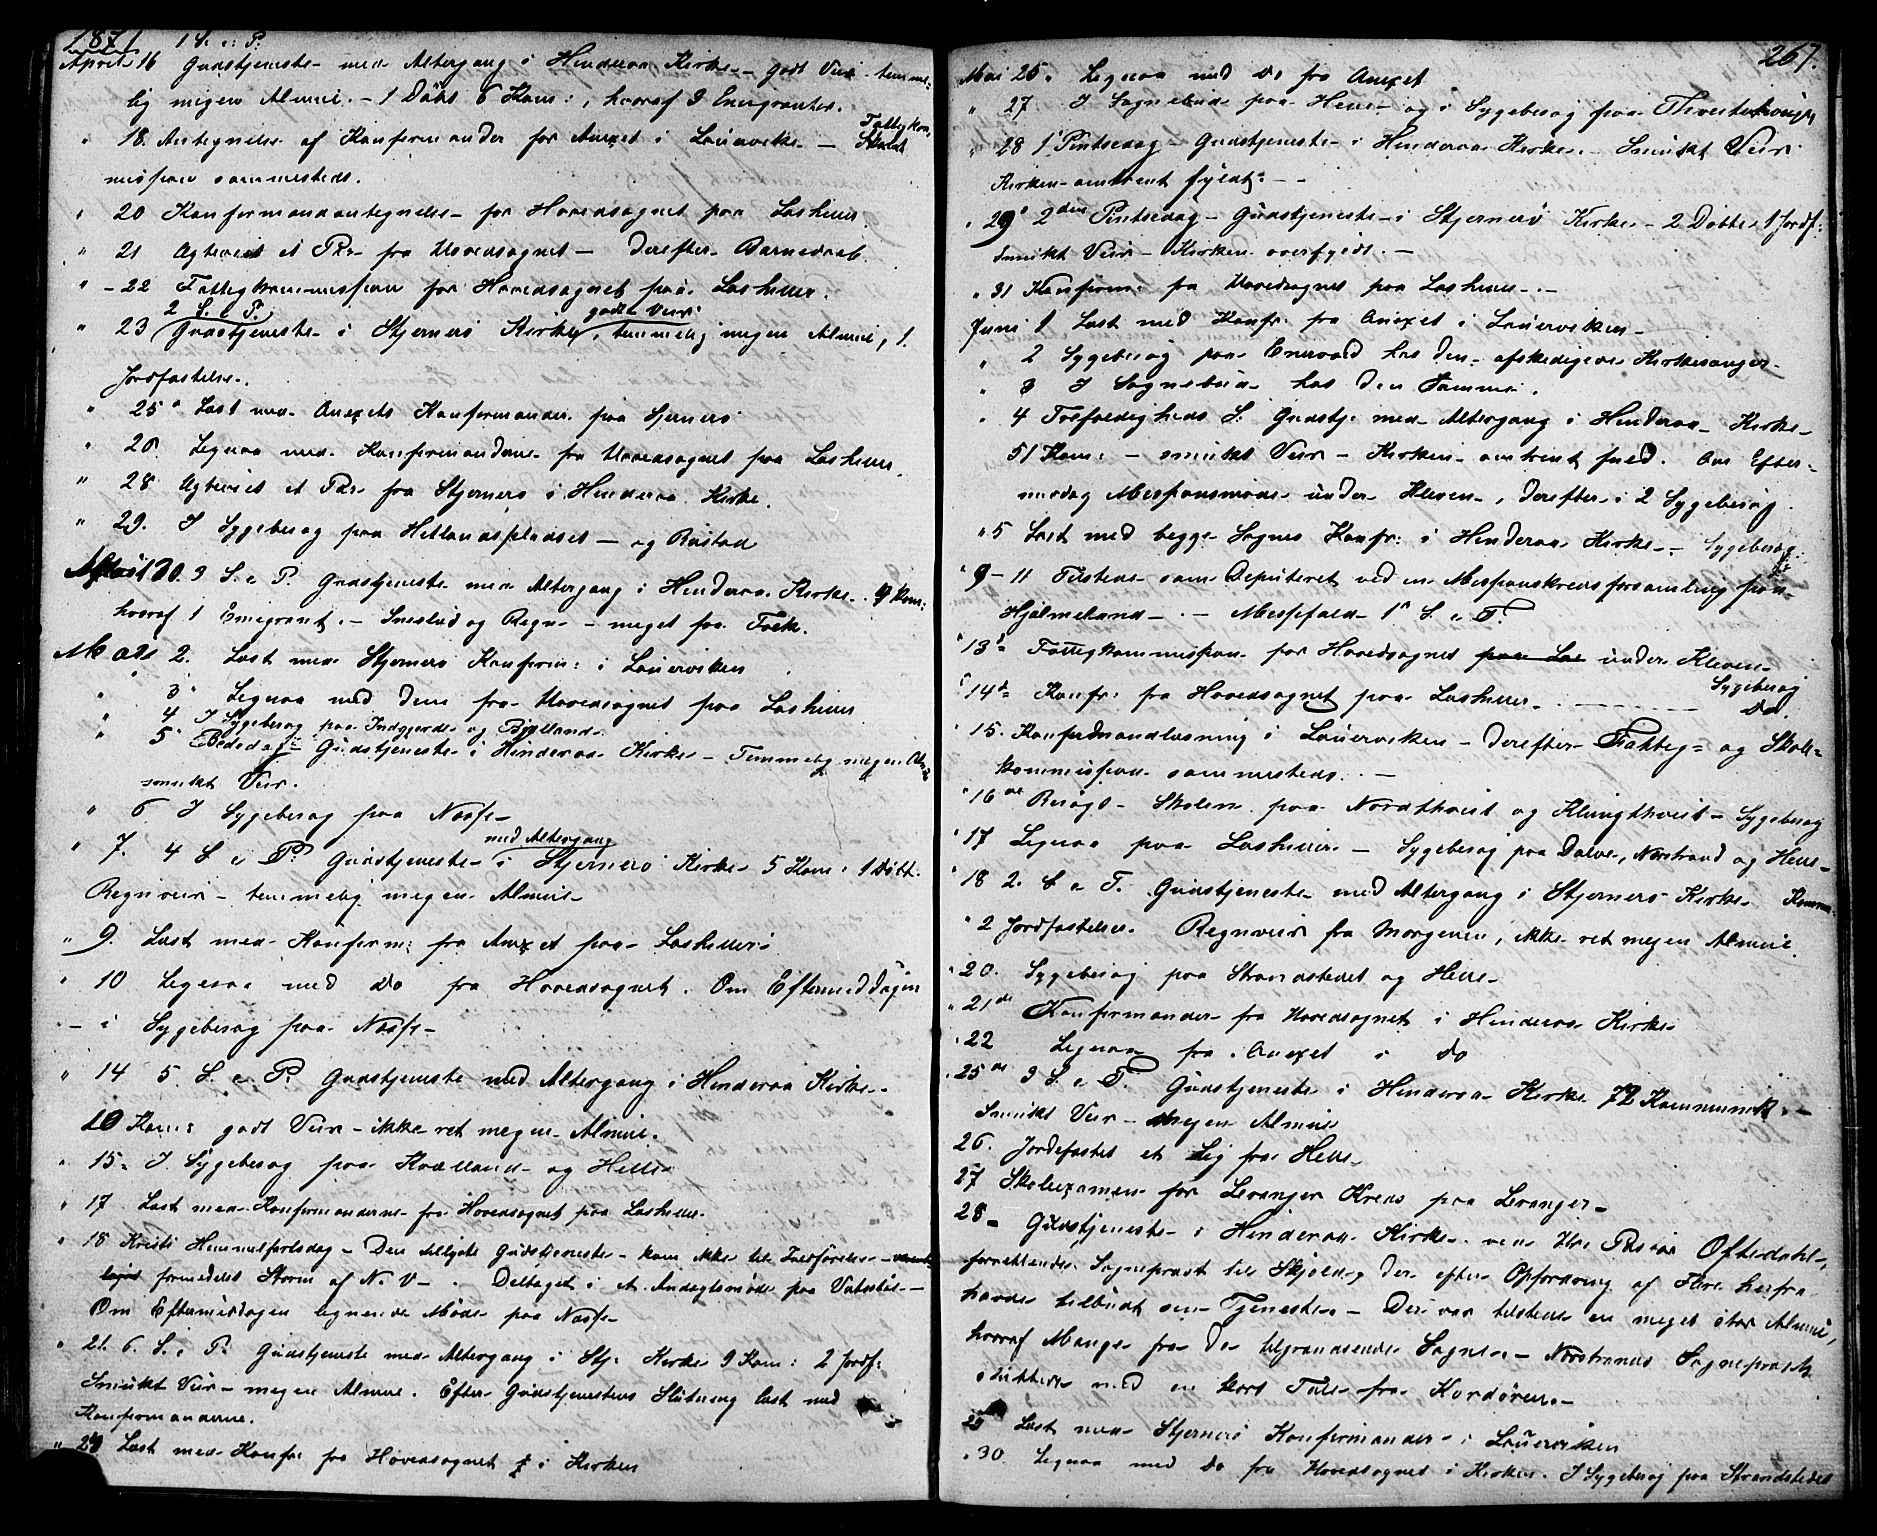 1871 1 S. e: P:
April 16 Gudstjeneste med Altergang i Hinderaa Kirke – godt Veir temme=
lig megen Almue. – 1 Dåbs 6 Kom:, hvoraf 3 Emigranter.
" 18. Antegnelse af Konfirmander for Anexet i Louervike – Fattigkom=
mission sammesteds.
" 20 Konfirmandantegnelse for Hovedsognet paa Loshuus
" 21 Agteviet et Par fra Hovedsognet – derefter Barnedaab.
" – 22 Fattigkommission for Hovedsognet paa Loshuus.
2 S. e. P. godt Veir
" 23 Gudstjeneste i Stjernerö Kirke, temmelig megen Almue, 1.
Jordfæstelse.
" 25 Læst med Anexets Konfirmander paa Sjernerö
" 26. Ligesaa med Konfirmanderne fra Hovedsognet paa Loshuus.
" 28 Agteviet et Par fra Stjernerö i Hinderaa Kirke.
" 29. I Sygebesøg paa Hetlandspladset – og Bustad
30. 3 S. e P. Gudstjeneste med Altergang i Hinderaa Kirke. 4 Kom:
hvoraf 1 Emigrant. – Sneslud og Regn – meget faa Folk.
Mai 2. Læst med Stjernerö Konfirm: i Louerviken
" 3 Ligesaa med dem fra Hovedsognet paa Loshuus
" 4 I Sygebesøg paa Indgjerde og Birkeland
" 5 Bededag – Gudstjeneste i Hinderaa Kirke – Temmelig megen Almue
smukt Veir.
" 6 I Sygebesøg paa Næsse
med Altergang
" 7. 4 S e P. Gudstjeneste i Stjernerö Kirke 5 Kom: 1 Döbt.
Regnveir – temmelig megen Almue
" 9. Læst med Konfirm: fra Anexet paa Loshuus
" 10 Ligesaa med do fra Hovedsognet. Om Eftermiddagen
– i Sygebesøg paa Næsse
" 14 5. S. e P. Gudstjeneste med Altergang i Hinderaa Kirke.
10 Kom: godt Veir – ikke ret megen Almue.
" 15 I Sygebesøg paa Kvælland og Helle
" 17 Læst med Konfirmanderne fra Hovedsognet paa Loshuus.
" 18 Kristi Himmelfartsdag – Den tillyste Gudstjeneste kom ikke til Udförelse
formedelst Storm af N. V – . Deltaget i et Andagtsmöde paa Vatseth –
Om Eftermiddagen lignende Möde paa Næsse
" 21. 6. S. e P. Gudstjeneste med Altergang i Stj: Kirke 9 Kom: 2 Jordf:
Smukt Veir – megen Almue. Efter Gudstjenestens Slutning læst med
Konfirmanderne.
" 24 Læst med Konfr: fra Hovedsognet i Kirken
267.
Mai 25. Ligesaa med do fra Anexet
" 27 I Sognebud paa Helle og i Sygebesøg paa
" 28 1 Pintsedag – Gudstjeneste i Hinderaa Kirke. Smukt Veir
Kirken omtrent fyldt –
" 29 2den Pintsedag – Gudstjeneste i Stjernerö Kirke – 2 Döbte 1 Jordf:
Smukt Veir – Kirken overfyldt. –
" 31 Konfirm: fra Hovedsognet paa Loshuus –
Juni 1 Læst med Konfr: fra Anexet i Louerviken –
" 2 Sygebesøg paa Enevold hos den afskedigede Kirkesanger
" 3 I Sognebud hos den Samme.
" 4 Trefoldigheds S. Gudstj: med Altergang i Hinderaa Kirke
51 Kom: – smukt Veir – Kirken omtrent fuld. Om Efter=
middag Missionsmöde under Kleven, derefter i 2 Sygebesøg
" 5 Læst med begge Sognes Konfr: i Hinderaa Kirke – Sygebesøg
" 9 – 11 Tilstede som Deputeret ved en Missionskredsforsamling paa
Hjelmeland – . – Messefald 1 S. e T.
" 13 Fattigkommission for Hovedsognet paa Los under Kleven – Sygebesøg
" 14de Konfr: fra Hovedsognet paa Loshuus – Do.
" 15. Konfirmandlæsning i Louerviken – derefter Fattig= og Skole=
kommission sammesteds. –
" 16de Besøgt Skolen paa Nordthveit og Klungthveit – Sygebesøg
" 17 Ligesaa paa Loshuus – Sygebesøg paa Dalve, Norstrand og Helle
" 18 2. S e T. Gudstjeneste med Altergang i Stjernerö Kirke
" 2 Jordfæstelser. Regnveir fra Morgenen, ikke ret megen Almue.
" 20. Sygebesøg paa Strandstedet og Helle
" 21de Konfirmander fra Hovedsognet i Hinderaa Kirke
" 22 Ligesaa fra Anexet i do
" 25de 3 S. e T. Gudstjeneste i Hinderaa Kirke 72 Kommunik: –
Smukt Veir – Megen Almue
26. Jordfæstet et Lig fra Helle
27 Skoleexamen for Leranger Kreds paa Leranger –
28 – Gudstjeneste i Hinderaa Kirke ved Hr. Pastor Oftedahl,
forrettende Sognepræst til Skjold, der efter Opfordring af Flere herfra
havde tilbudt sin Tjeneste – Der var tilstede en meget stor Almue,
hvoraf Mange fra de tilgrændsende Sogne – Nærstrands Sognepræst
sluttede med en kort Tale fra Kordören –
29 Læst med Stjernerö Konfirmander i Louerviken
" 30. Ligesaa med do fra Hovedsognet i Kirken. I Sygebesøg paa Strandstedet